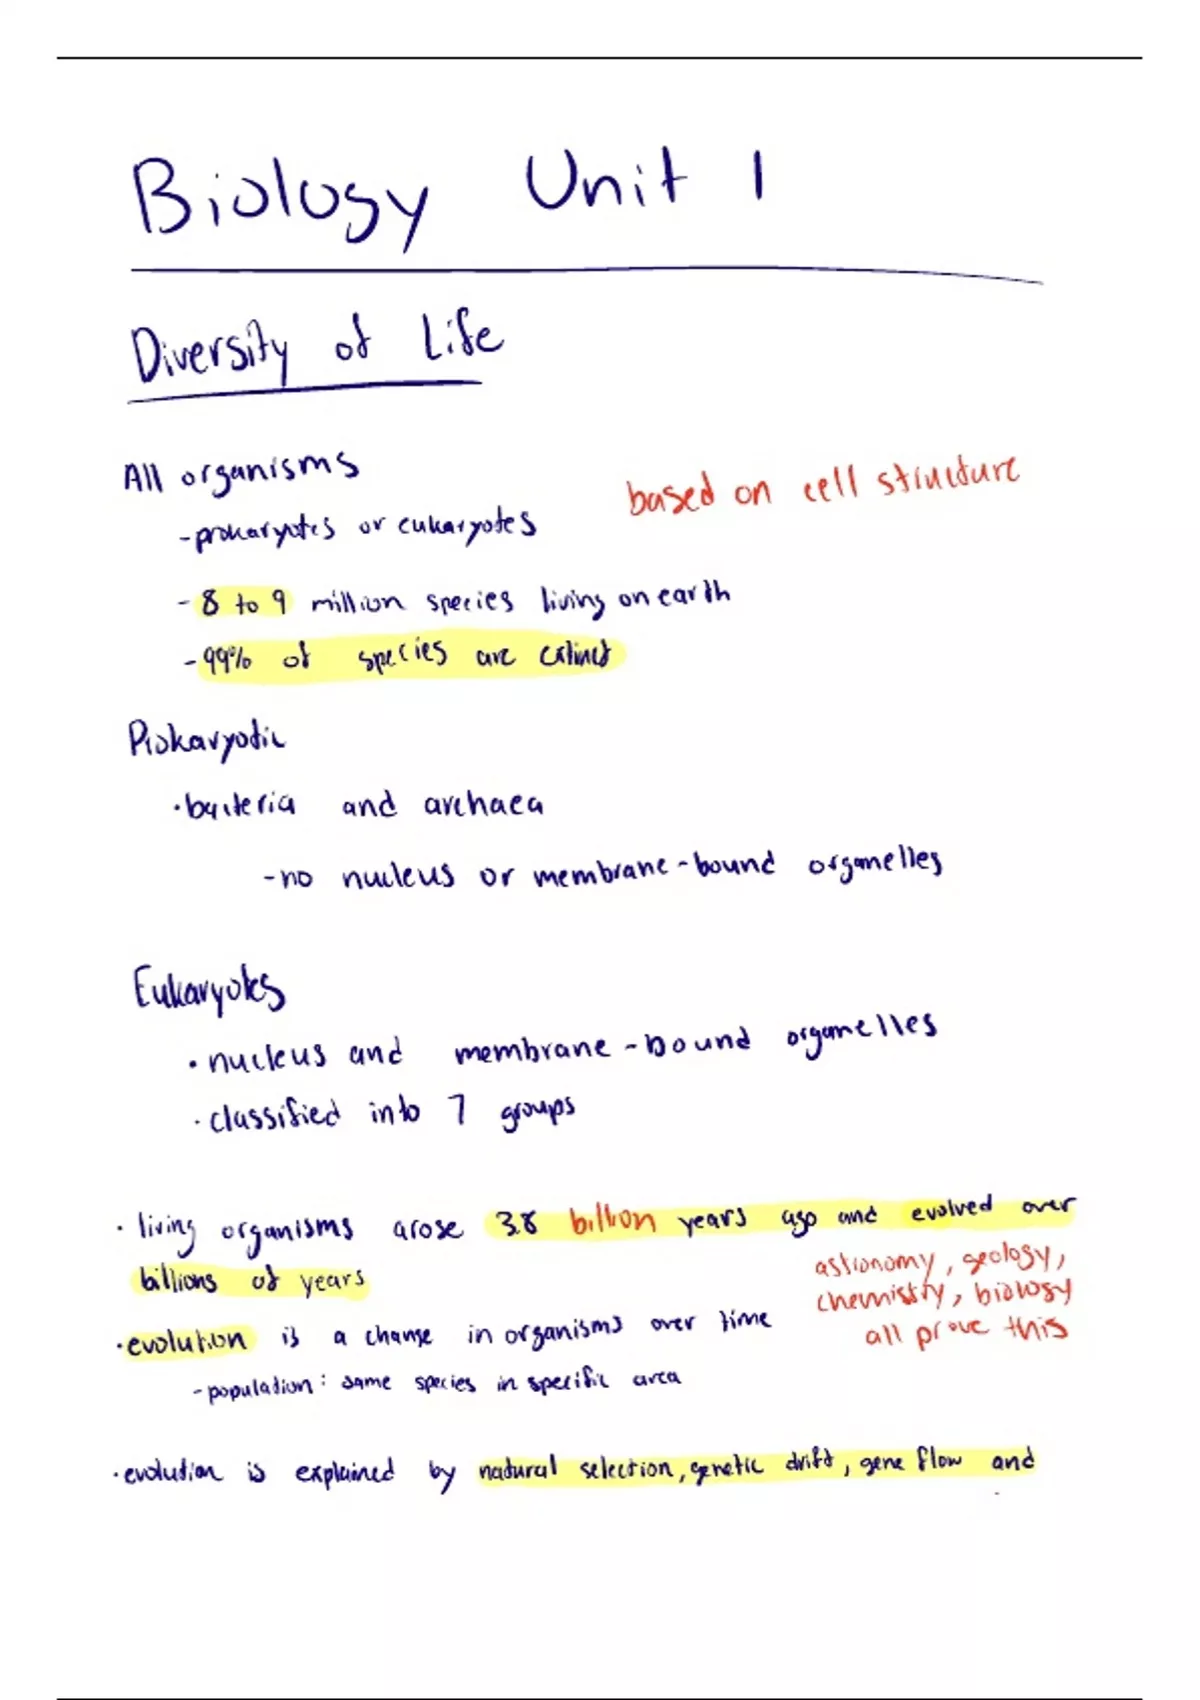 Biology Unit 1
Diversity of Life
All organisms
based on cell structure
- prokaryotes or eukaryotes
- 8 to 9 million species living on earth
- 99% of species are extinct
Prokaryotic
· bacteria and archaea
- no nucleus or membrane-bound organelles
Eukaryotes
· nucleus and membrane-bound organelles
· classified into 7 groups
· living organisms arose 3.8 billion years ago and evolved over
billions of years
astronomy, geology,
chemistry, biology
all prove this
· evolution is a change in organisms over time
- population: same species in specific area
· evolution is explained by natural selection, genetic drift, gene flow and